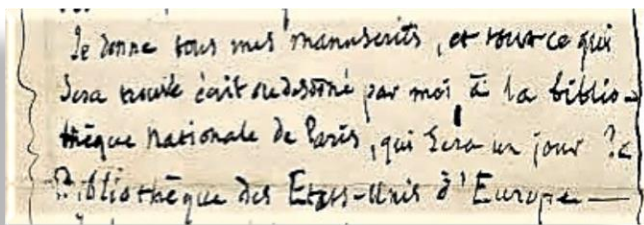 Je donne tous mes manuscrits, et tout ce qui
sera trouvé écrit ou dessiné par moi à la biblio-
thèque nationale de Paris, qui sera un jour la
Bibliothèque des Etats-Unis d'Europe —